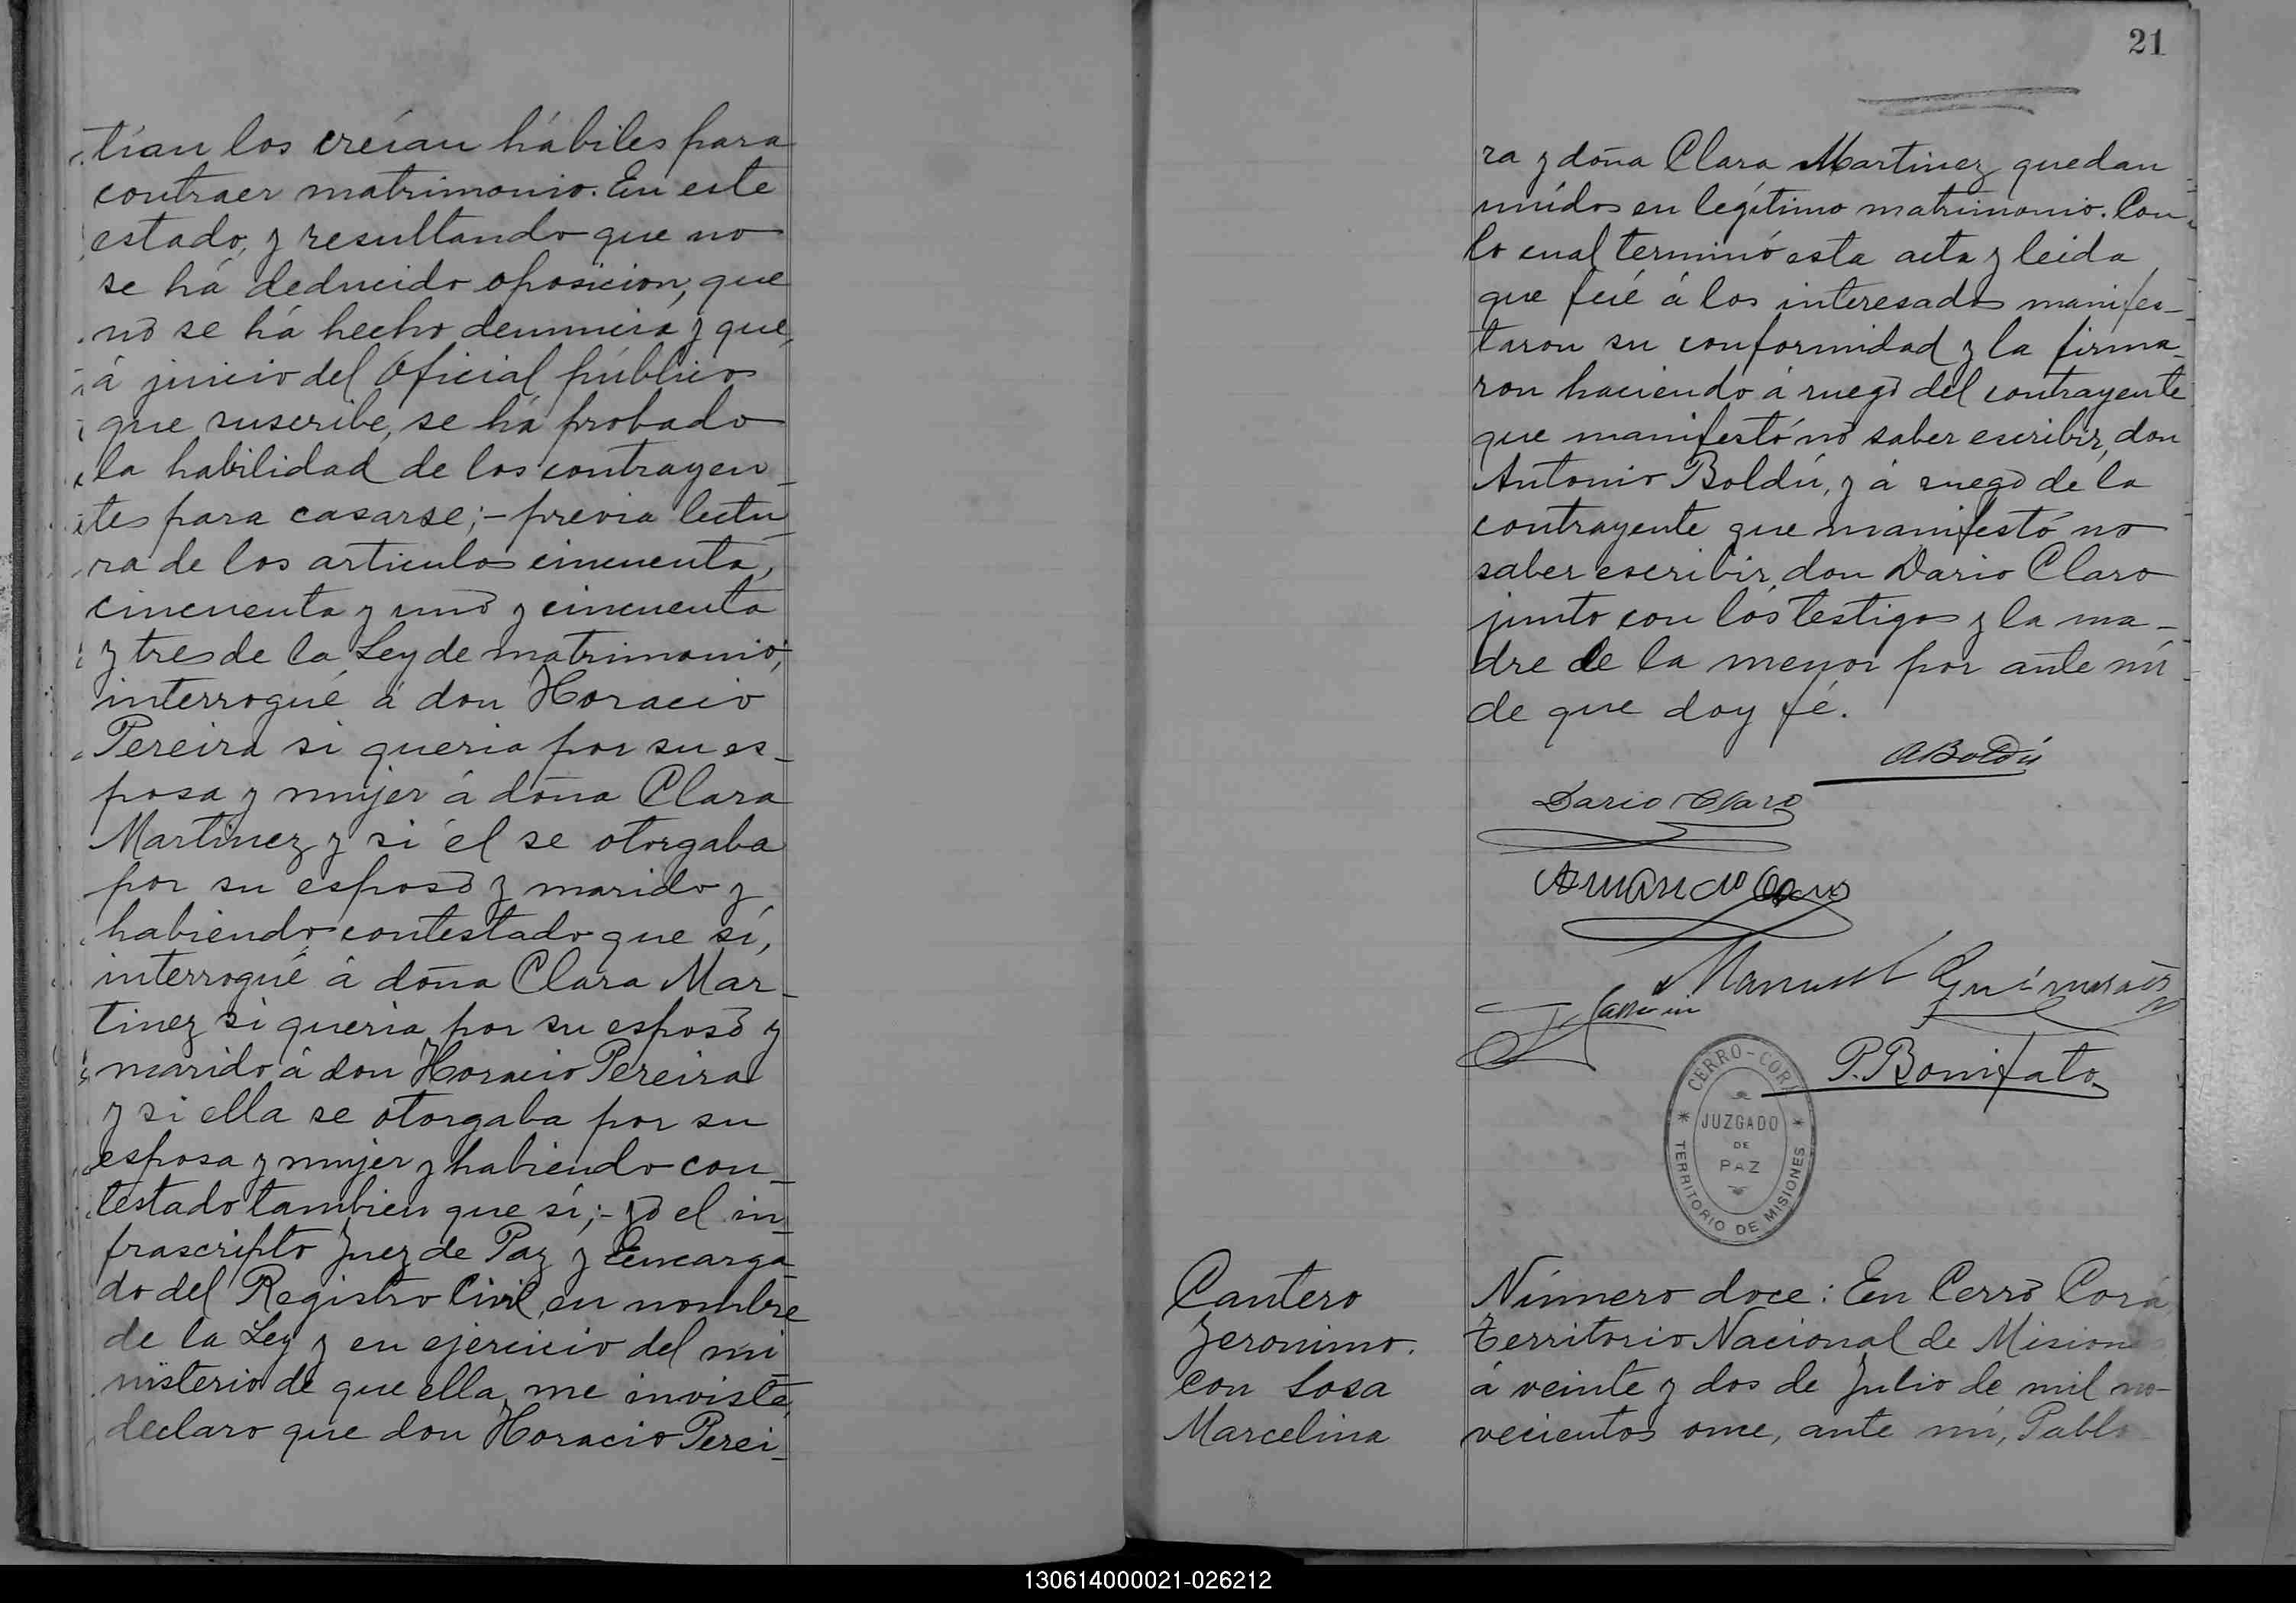 tían los creían hábiles para
contraer matrimonio. En este
estado, y resultando que no
se há deducido oposicion, que
no se há hecho denuncia y que,
á juicio del Oficial público
que suscribe, se há probado
la habilidad de los contrayen-
tes para casarse;- previa lectu-
ra de los articulos cincuenta,
cincuenta y uno y cincuenta
y tres de la Ley de matrimonio,
interrogué á don Horacio
Pereira si queria por su es-
posa y mujer á doña Clara
Martinez y si él se otorgaba
por su esposo y marido y
habiendo contestado que sí,
interrogué á doña Clara Mar-
tinez si queria por su esposo y
marido á don Horacio Pereira
y si ella se otorgaba por su
esposa y mujer y habiendo con-
testado tambien que sí;- yo el in-
frascripto Juez de Paz y Encarga-
do del Registro Civil, en nombre
de la Ley y en ejercicio del mi-
nisterio de que ella me inviste,
declaro que don Horacio Perei-
21
ra y doña Clara Martinez quedan
unidos en legítimo matrimonio. Con
lo cual terminó esta acta y leida
que fué á los interesados manifes-
taron su conformidad y la firma-
ron haciendo á ruego del contrayente
que manifestó no saber escribir, don
Antonio Boldú, y á ruego de la
contrayente que manifestó no
saber escribir, don Dario Claro
junto con los testigos y la ma-
dre de la menor por ante mí
de que doy fé.
ABoldú
Dario Claro
Manuel Guimaraes
P. Bonifato
CERRO-CORÁ
JUZGADO
DE
PAZ
TERRITORIO DE MISIONES
Cantero
Jeronimo.
con Sosa
Marcelina
Número doce: En Cerro Corá,
Territorio Nacional de Misiones
á veinte y dos de Julio de mil no-
vecientos once, ante mí, Pablo
130614000021-026212